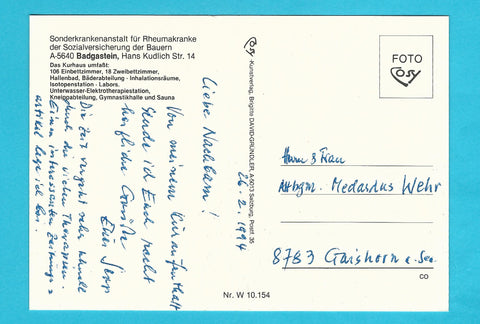 Sonderkrankenanstalt für Rheumakranke
der Sozialversicherung der Bauern
A-5640 Badgastein, Hans Kudlich Str. 14
Das Kurhaus umfaßt:
106 Einbettzimmer, 18 Zweibettzimmer,
Hallenbad, Bäderabteilung - Inhalationsräume,
Isotopenstation - Labors.
Unterwasser-Elektrotherapiestation,
Kneippabteilung, Gymnastikhalle und Sauna
26.2.1994
Liebe Nachbarn!
Von meinem Kuraufenthalt
sende ich Euch recht
herzliche Grüße
Euer Sepp
Die Zeit vergeht sehr schnell
durch die vielen Therapien.
Einen interessanten Zeitungs=
artikel lege ich bei.
Cosy - Kunstverlag, Brigitte DAVID-GRÜNDLER, A-5013 Salzburg, Postf. 35
FOTO
Cosy
Herrn & Frau
Altbgm. Medardus Wehr
8783 Gaishorn a. See.
CO
Nr. W 10.154